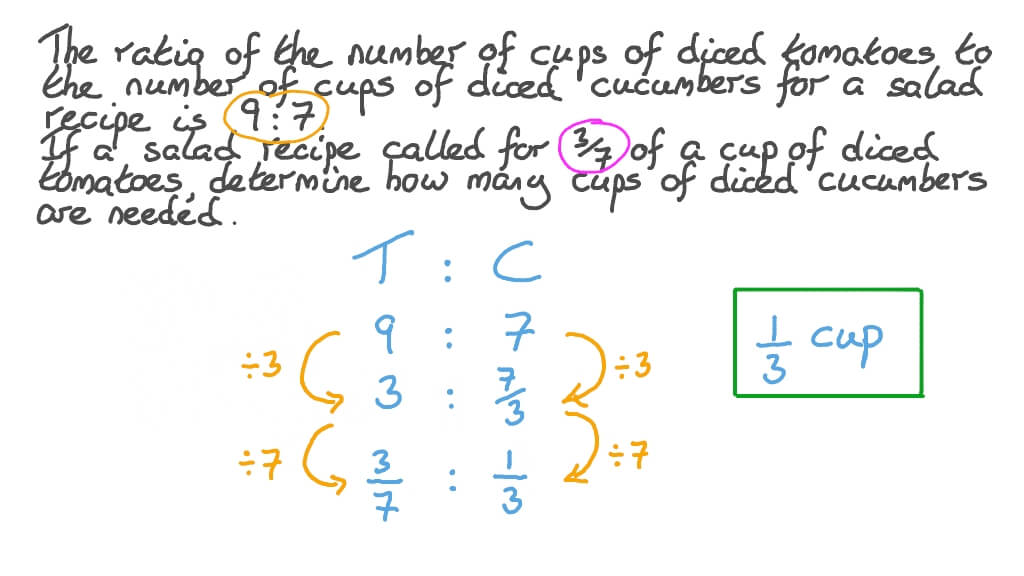 The ratio of the number of cups of diced tomatoes to
the number of cups of diced cucumbers for a salad
recipe is 9:7.
If a salad recipe called for 3/7 of a cup of diced
tomatoes, determine how many cups of diced cucumbers
are needed.
T : C
9 : 7
÷3 ÷3
3 : 7/3
÷7 ÷7
3/7 : 1/3
1/3 cup